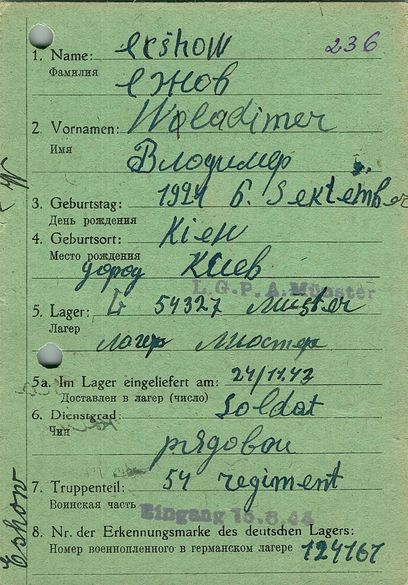 236
1. Name: ekshow
Фамилия
ежов
2. Vornamen: Woladimer
Имя
Владимер
3. Geburtstag: 1921 6. Sektember
День рождения
4. Geburtsort: Kien
Место рождения
город Киев
L.G.P.A. Münster
5. Lager: 54327 Muster
Лагер
лагер Мюстер
5a. Im Lager eingeliefert am: 24/11.43
Доставлен в лагер (число)
6. Dienstgrad: Soldat
Чин
рядовои
7. Truppenteil: 54 regiment
Воинская часть
Eingang 15.8.44
8. Nr. der Erkennungsmarke des deutschen Lagers:
Номер военнопленного в германском лагере 124167
Eshow